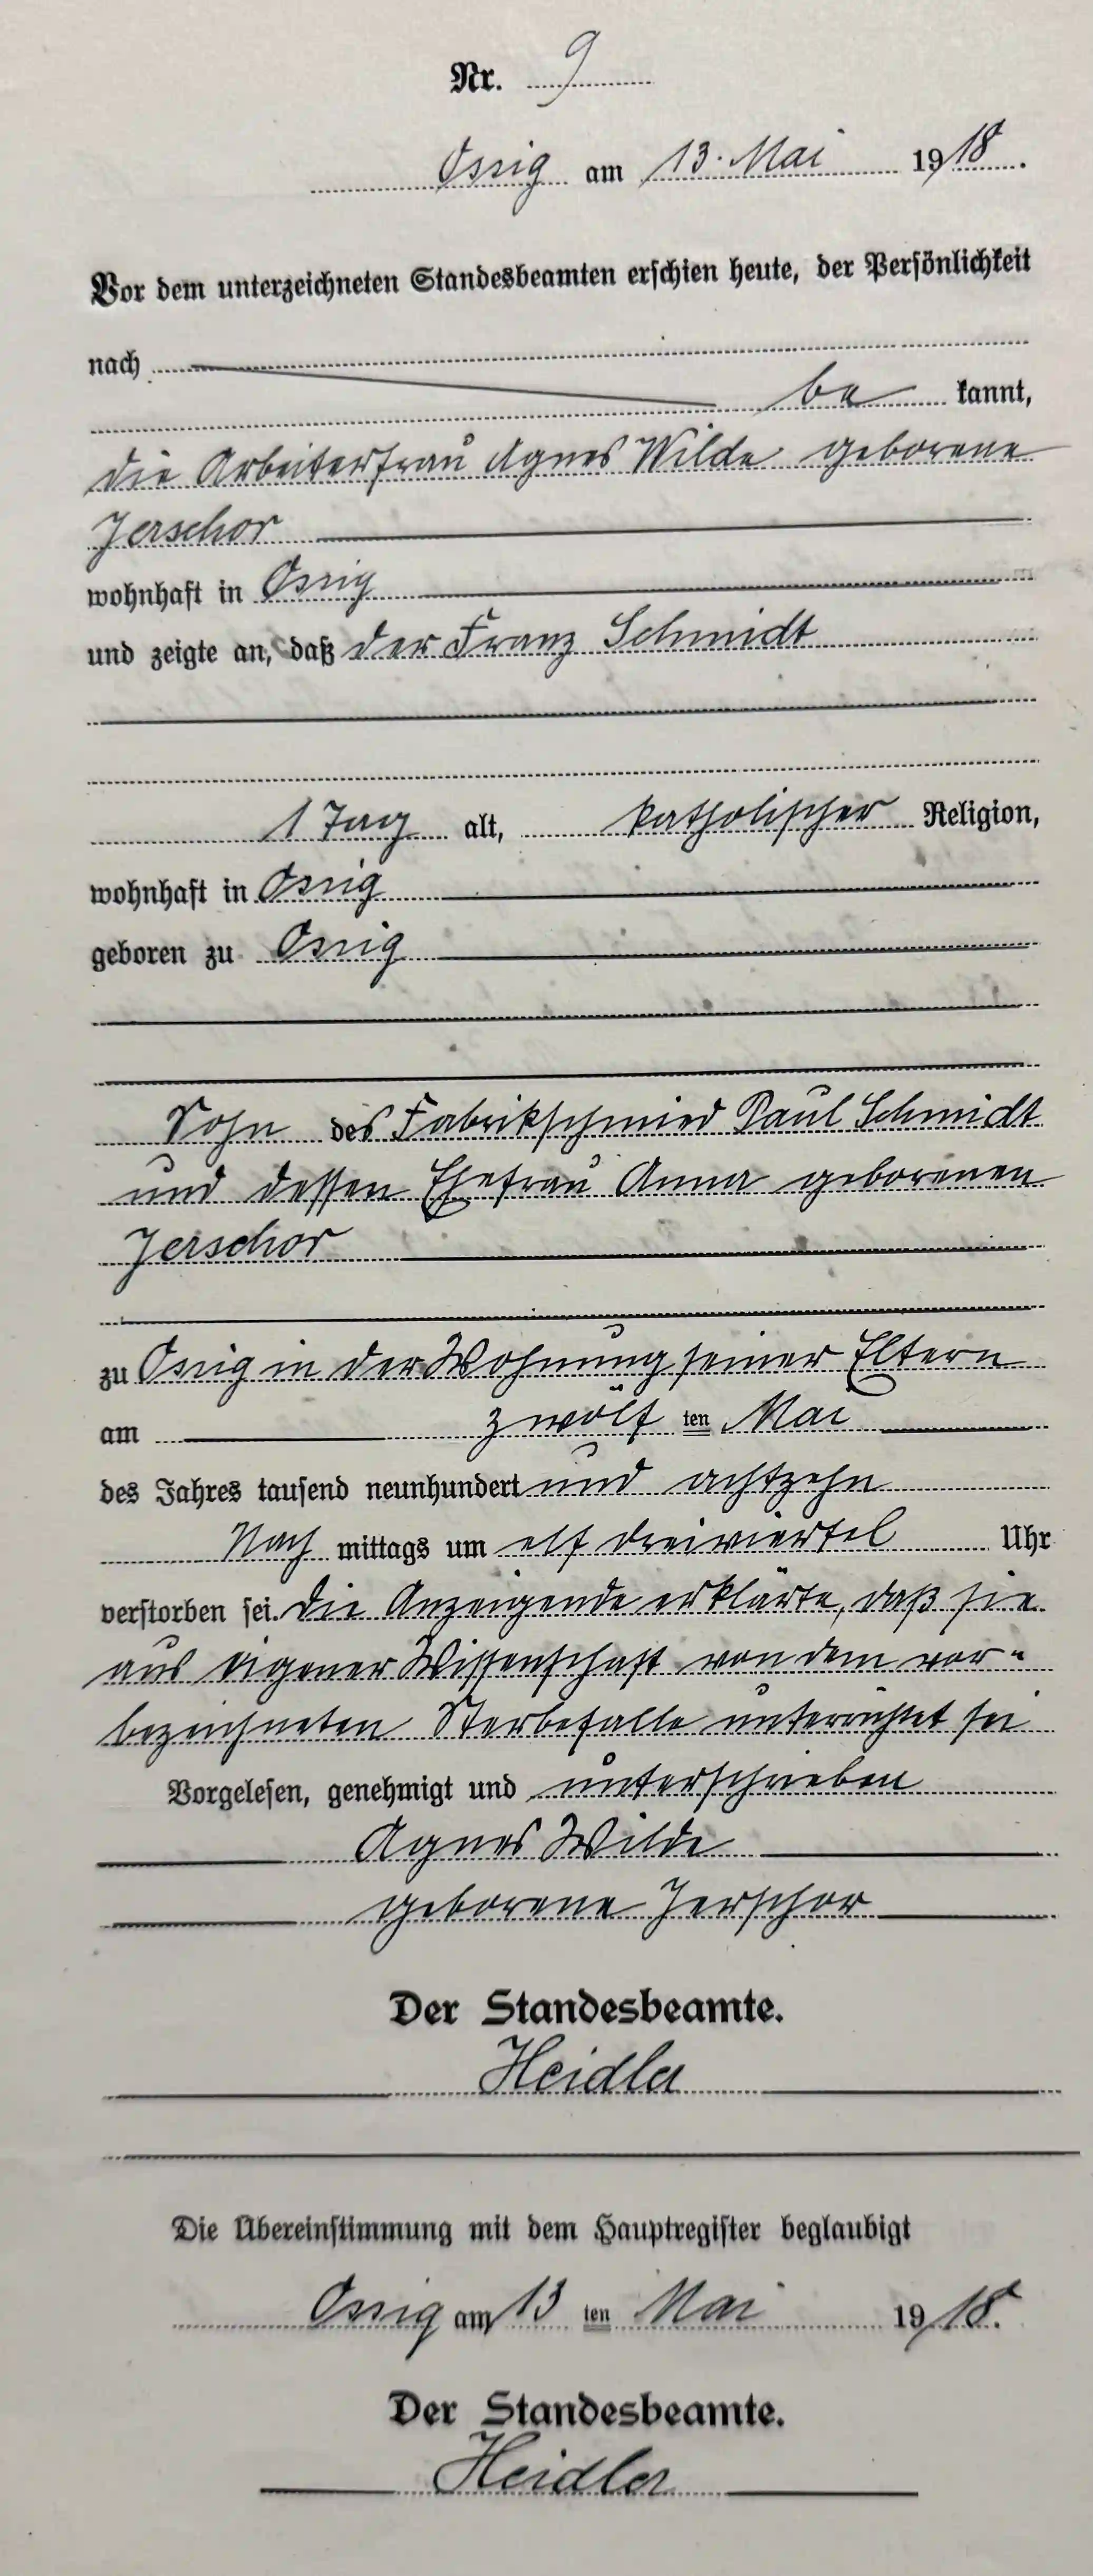 Nr. 9
Ossig am 13. Mai 1918.
Vor dem unterzeichneten Standesbeamten erschien heute, der Persönlichkeit
nach
be kannt,
die Arbeiterfrau Agnes Wilde geborene
Jerschor
wohnhaft in Ossig
und zeigte an, daß der Franz Schmidt
1 Tag alt, katholischer Religion,
wohnhaft in Ossig
geboren zu Ossig
Sohn des Fabrikschmied Paul Schmidt
und dessen Ehefrau Anna geborenen
Jerschor
zu Ossig in der Wohnung seiner Eltern
am zwölf ten Mai
des Jahres tausend neunhundert und achtzehn
Nach mittags um elf dreiviertel Uhr
verstorben sei. Die Anzeigende erklärte, daß sie
aus eigener Wissenschaft von dem vor-
bezeichneten Sterbefalle unterrichtet sei
Vorgelesen, genehmigt und unterschrieben
Agnes Wilde
geborene Jerschor
Der Standesbeamte.
Heidler
Die Übereinstimmung mit dem Hauptregister beglaubigt
Ossig am 13 ten Mai 1918.
Der Standesbeamte.
Heidler